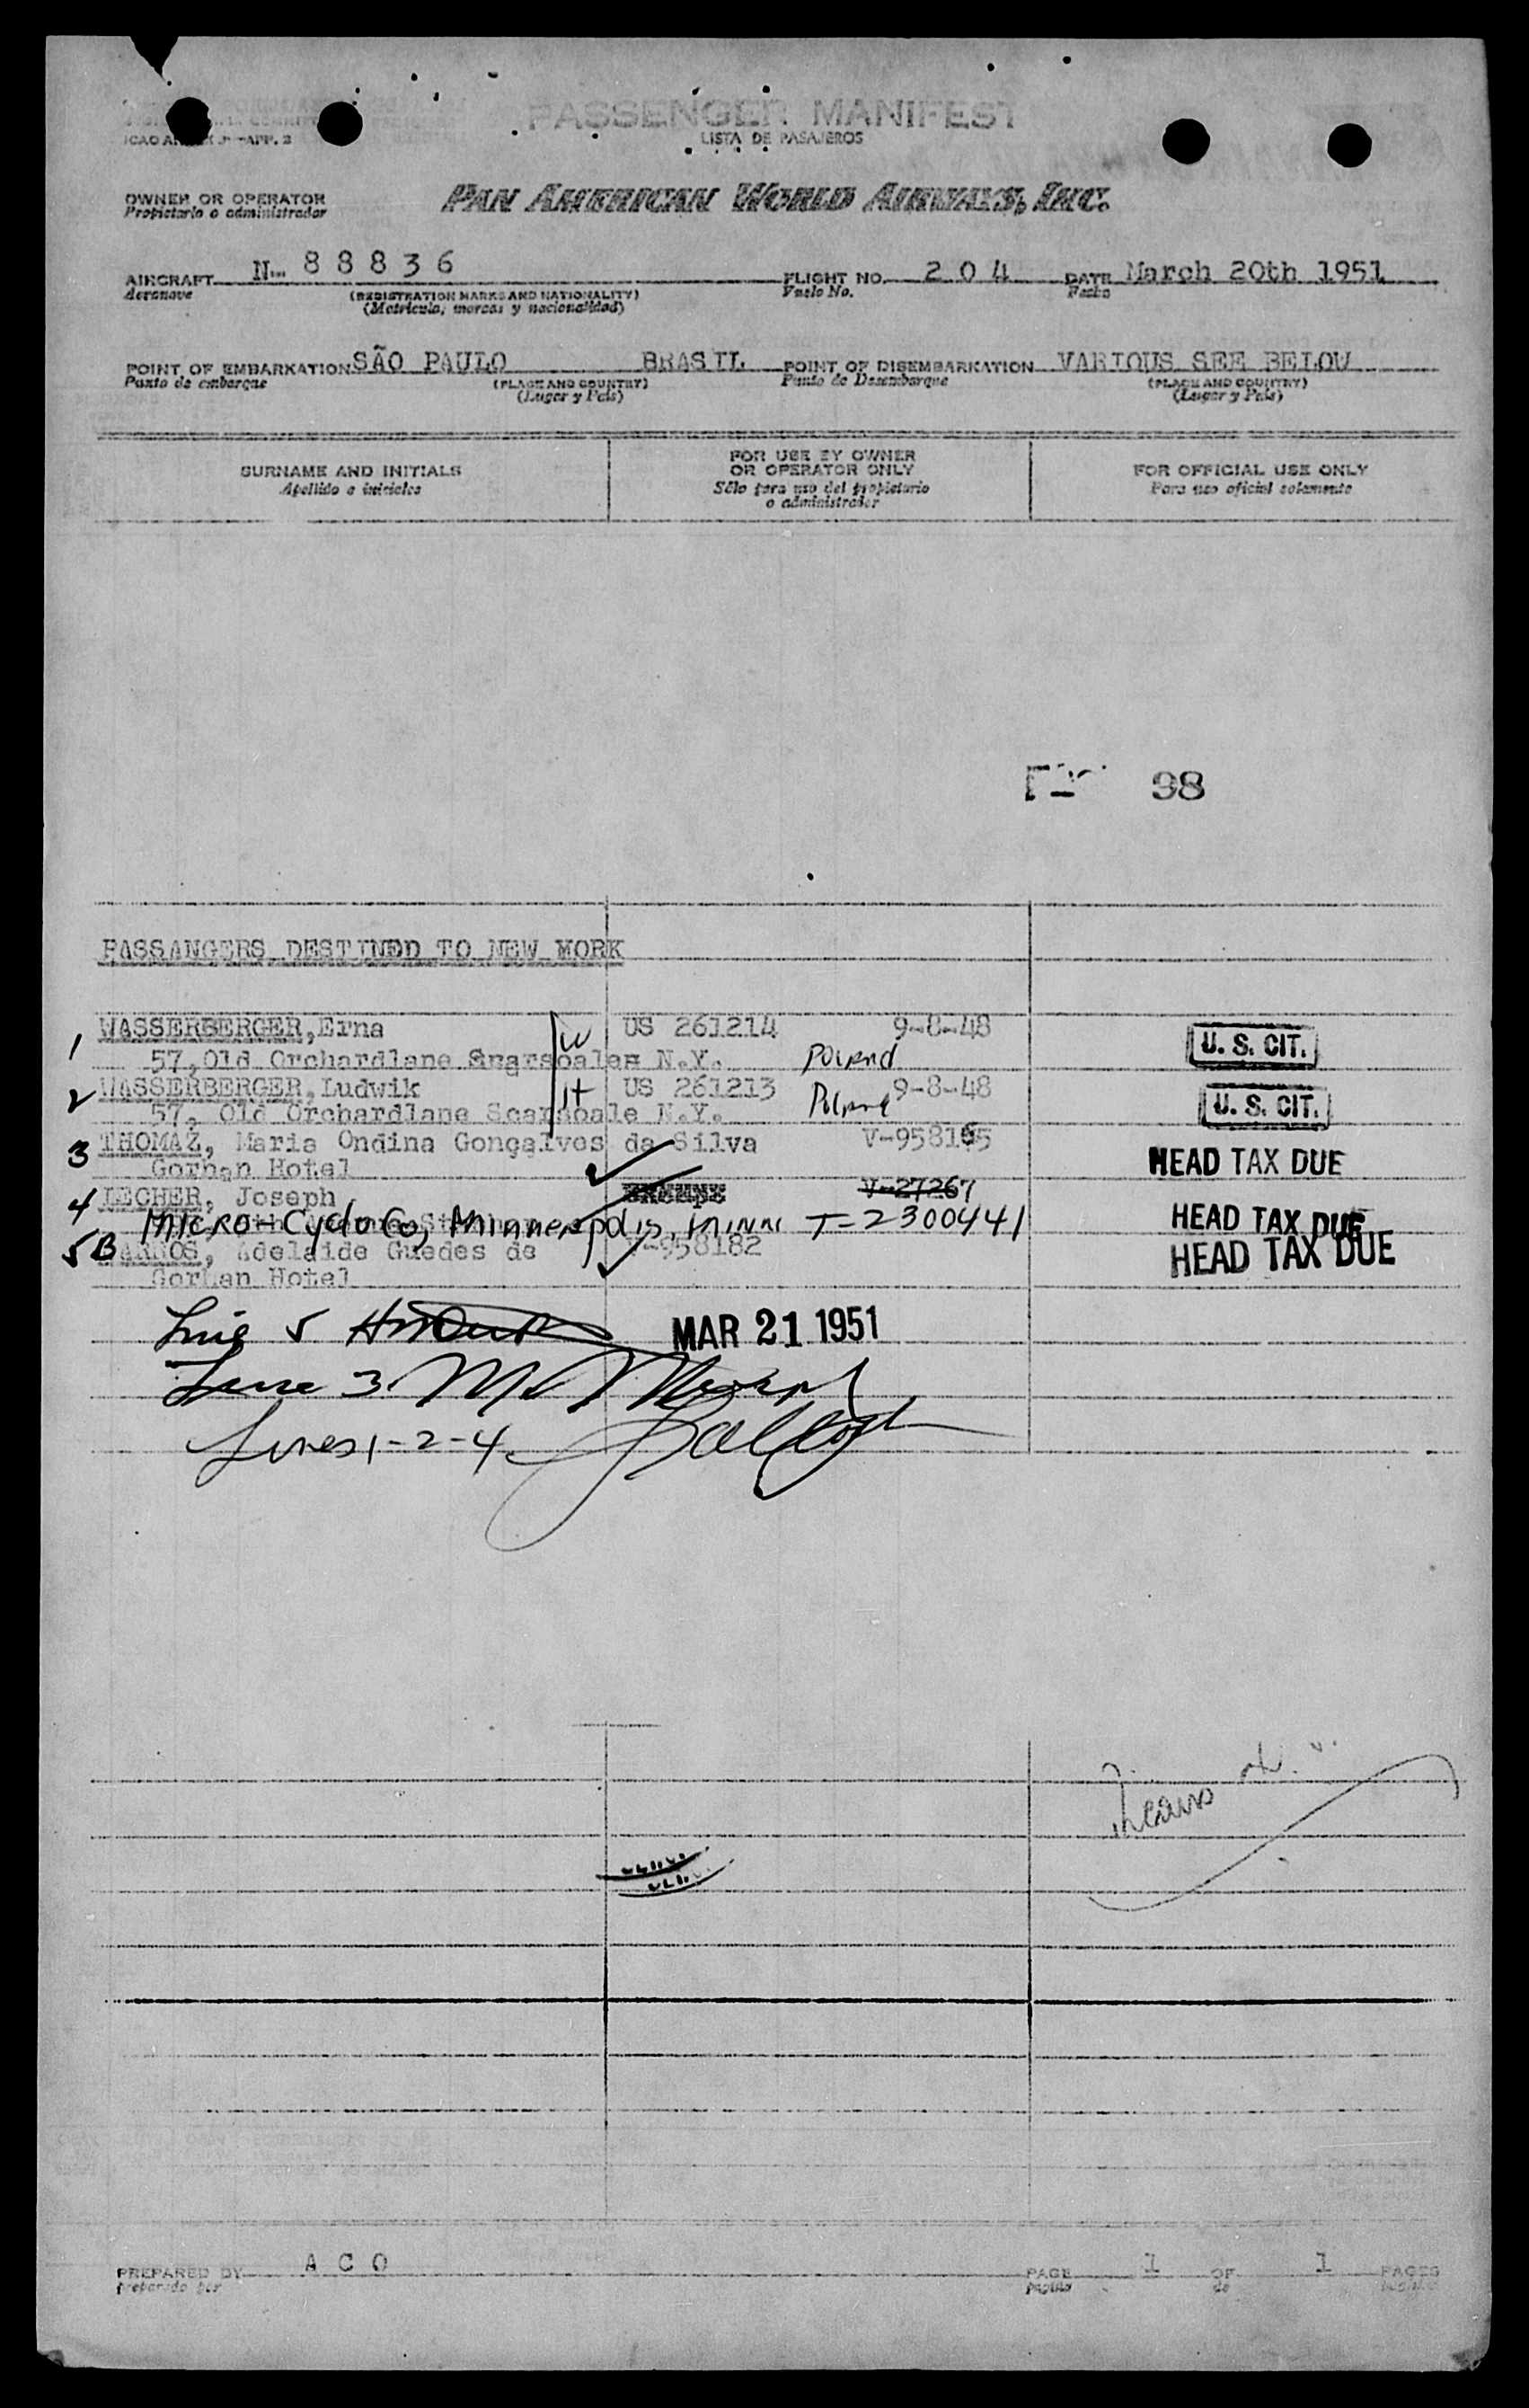 PASSENGER MANIFEST
LISTA DE PASAJEROS
APP. 2
OWNER OR OPERATOR
Propietario o administrador
PAN AMERICAN WORLD AIRWAYS, INC.
AIRCRAFT N 88836 FLIGHT NO. 204 DATE March 20th 1951
Aeronave (REGISTRATION MARKS AND NATIONALITY) Vuelo No. Fecha
(Matricula, marcas y nacionalidad)
POINT OF EMBARKATION SÃO PAULO BRASIL POINT OF DISEMBARKATION VARIOUS SEE BELOW
Punto de embarque (PLACE AND COUNTRY) Punto de Desembarque (PLACE AND COUNTRY)
(Lugar y País) (Lugar y País)
SURNAME AND INITIALS
Apellido e iniciales
FOR USE BY OWNER
OR OPERATOR ONLY
Sólo para uso del propietario
o administrador
FOR OFFICIAL USE ONLY
Para uso oficial solamente
98
PASSANGERS DESTINED TO NEW MORK
1 WASSERBERGER, Erna W US 261214 9-8-48 U. S. CIT.
57, Old Orchardlane N.Y. Poland
2 WASSERBERGER, Ludwik H US 261213 9-8-48 U. S. CIT.
57, Old Orchardlane Scarsoale N.Y. Poland
3 THOMAZ, Maria Ondina Gonçalves da Silva V-958165 HEAD TAX DUE
Gorhan Hotel
4 LECHER, Joseph V-27267 HEAD TAX DUE
Micro-Cyclo Co, Minneapolis, Minn T-2300441
5 BARROS, Adelaide Guedes de V-958182 HEAD TAX DUE
Gorhan Hotel
Line 5
MAR 21 1951
Line 3
Lines 1-2-4
PREPARED BY A C O PAGE 1 OF 1 PAGES
preparado por página de